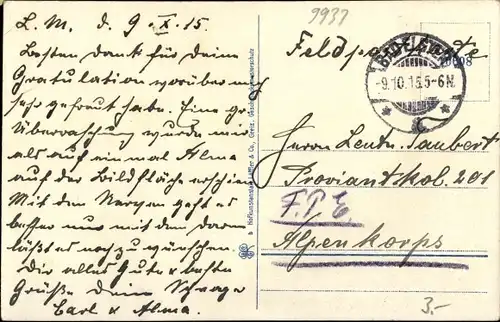 L. M. d. 9.X.15.
Besten Dank für Deine
Gratulation worüber mich
sehr gefreut habe. Eine gr.
Überraschung wurde mir
als auf einmal Alma
auf der Bildfläche erschien
Mit den Nerven geht es
besser nur mit dem Darm
läßt es noch zu wünschen.
Dir alles Gute u. beste
Grüße Dein Schwager
Carl u Alma.
9937
Feldpostkarte
BAD ELSTER
-9.10.15.5-6N.
* c *
Herrn Leutn. Taubert
Proviantkol. 201
F.P.E.
Alpenkorps
3.-